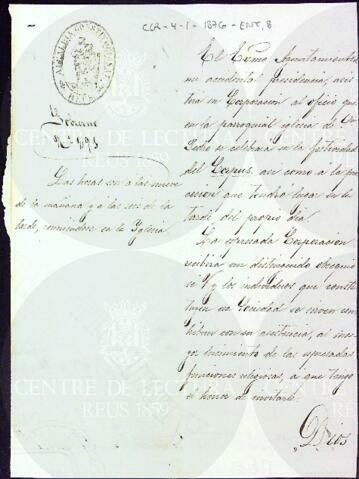 CCR-4-1-1876-ENT, 8
ALCALDIA CONSTITUCIONAL
REUS
Nº 1893
Las horas son a las nueve
de la mañana y á las seis de la
tarde, reuniendose en la Iglesia.
El Excmo Ayuntamiento de
mi accidental presidencia, asis
tirá en Corporacion al oficio que
en la parroquial iglesia de San
Pedro se celebrará en la festividad
del Corpus, asi como a la pro
cesion que tendrá lugar en la
tarde del propio dia.
La espresada Corporacion
recibirá un distinguido obsequio
si V. y los individuos que consti
tuyen esa Sociedad se sirven con
tribuir con su asistencia, al ma
yor lucimiento de las espresadas
funciones religiosas, á que tengo
el honor de invitarle.
Dios
CENTRE DE LECTURA
REUS 1859